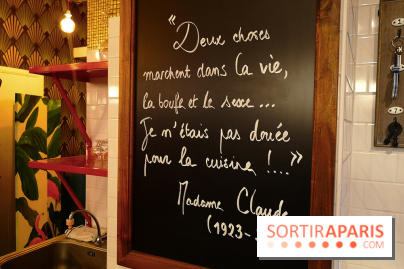 “Deux choses
marchent dans la vie,
la bouffe et le sexe...
Je n'étais pas douée
pour la cuisine !...”
Madame Claude
(1923-
SORTIRAPARIS
.COM